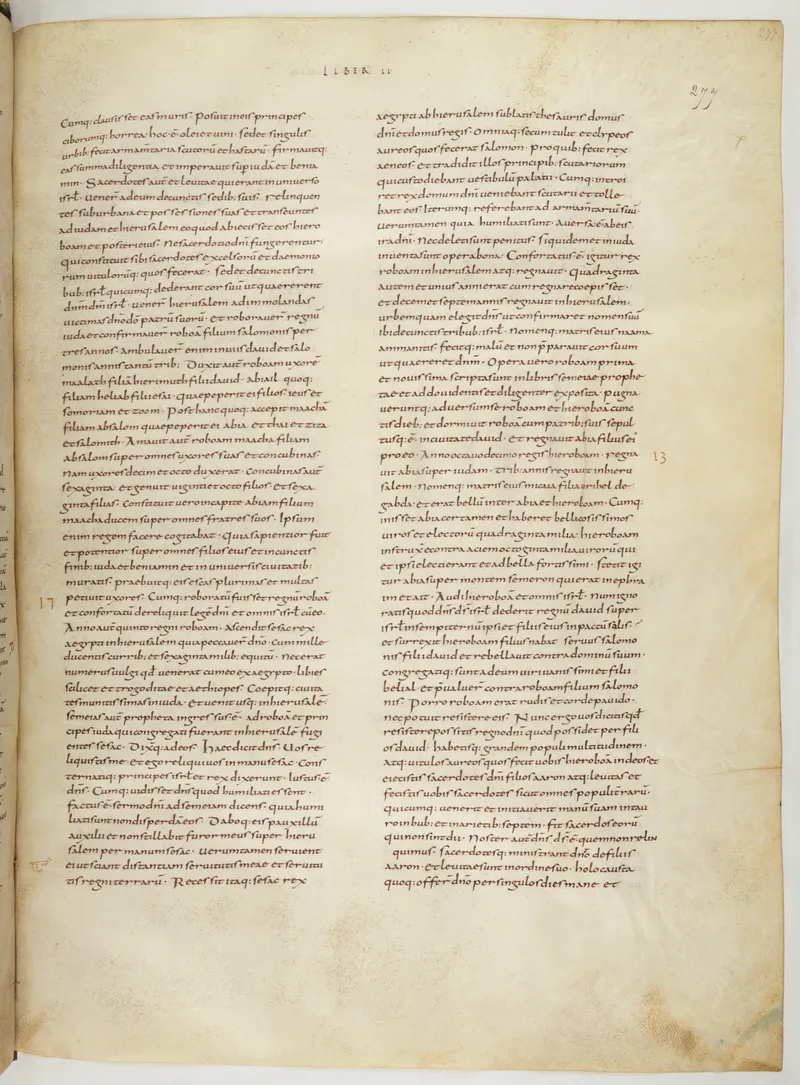 LIBER II
277
Cumq; clausisset eas muris. Posuit in eis principes
ciborumq; horrea. hoc ē olei et uini. sed et singulis
urbib; fecit armamtaria scutorū et hastarū. firmauitq;
eas summa diligentia. et imperauit sup iudā et benia
min. Sacerdotes aut̄ et leuitae qui erant in uniuerso
isrł. uener̄ ad eum de cunctis sedib; suis. relinquen
tes suburbana et possessiones suas et transeuntes
ad iudam et hierusalem eo quod abiecisset eos hiero
boam et posteri eius. Ne sacerdotio dnī fungerentur.
qui constituit sibi sacerdotes excelsorū et daemonio
rum uitulorūq; quos fecerat. sed et de cunctis tri
bub; isrł quicumq; dederant cor suū ut quaererent
dnm̄ dm̄ isrł. uener̄ hierusalem ad immolandas
uictimas dnō dō patrū suorū. Et roborauer̄ regnū
iuda et confirmauer̄ roboā filium salomonis per
tres annos. Ambulauer̄ enim in uiis dauid et salo
monis annis tantū trib; Duxit aut̄ roboam uxorē
maalath filiā hierimuth filii dauid. abiail quoq;
filiam heliab filii esai. quae peperit ei filios ieus et
somoriam et zoom. Post hanc quoq; accepit maachā
filiam absalom quae peperit ei abia. et thai et ziza
et salomith. Amauit aut̄ roboam maacha filiam
absalom super omnes uxores suas et concubinas.
Nam uxores decim et octo duxerat. concubinas aut̄
sexaginta. et genuit uiginti et octo filios. et sexa
ginta filias. Constituit uero in capite abiam filium
maacha ducem super omnes fratres suos. Ipsum
enim regem facere cogitabat. quia sapientior fuit
et potentior super omnes filios eius et in cunctis
finib; iuda et beniamin et in uniuersis ciuitatib;
muratis. praebuitq; eis escas plurimas et multas
17 petiuit uxores. Cumq; roboratū fuisset regnū roboā
et confortatū dereliquit legē dnī et omnis isrł cū eo.
Anno aut̄ quinto regni roboam. Ascendit sesac rex
aegypti in hierusalem quia peccauer̄ dnō. cum mille
ducentis currib; et sexaginta milib; equitū. nec erat
numerus uulgi qd̄ uenerat cum eo ex aegypto. libies
scilicet et trogoditae et aethiopes. Coepitq; ciuita
tes munitissimas in iuda. et uenit usq; in hierusalē.
semeias aut̄ propheta ingressus ē. ad roboā et prin
cipes iuda qui congregati fuerant in hierusalē fugi
entes sesac. Dixq; ad eos. Haec dicit dns̄. Uos re
liquistis me. et ego reliqui uos in manu sesac. Cons
ternatiq; principes isrł et rex dixerunt. Iustus ē
dns̄. Cumq; uidisset dns̄ quod humiliati essent.
factus ē sermo dnī ad semeiam dicens. quia humi
liati sunt non disperdā eos. Daboq; eis pauxillū
auxilii et non stillabit furor meus super hieru
salem per manum sesac. Uerumtamen seruient
ei ut sciant distantiam seruitutis meae et seruitu
tis regni terrarū. Recessit itaq; sesac rex
aegypti ab hierusalem sublatis thesauris domus
dnī et domus regis. omniaq; secum tulit et clypeos
aureos quos fecerat salomon. Pro quib; fecit rex
aeneos et tradidit illos principib; scutariorum
qui custodiebant uestibulū palatii. Cumq; introi
ret rex domum dnī ueniebant scutarii et tolle
bant eos. Iterumq; referebant ad armamtariū suū.
Uerumtamen quia humiliati sunt. Auersa ē ab eis
ira dnī. Nec deleti sunt penitus. siquidem et in iuda
inuenta sunt opera bona. Confortatus ē igitur rex
roboam in hierusalem atq; regnauit. Quadraginta
autem et unius anni erat cum regnare coepisset.
et decem et septem annis regnauit in hierusalem.
urbem quam elegit dns̄ ut confirmaret nomen suū
ibi de cunctis tribub; isrł. Nomenq; matris eius naama
ammanitis. fecitq; malū et non p̄parauit cor suum
ut quaereret dnm̄. Opera uero roboam prima
et nouissima scripta sunt in libris semeiae prophe
tae et addo uidentis et diligenter exposita. pugna
ueruntq; aduersum se roboam et hieroboā cunc
tis dieb; et dormiuit roboā cum patrib; suis sepul
tusq; ē in ciuitate dauid. et regnauit abia filius ei
pro eo. Anno octauo decimo regis hieroboam. regna 13
uit abia super iudam. Trib; annis regnauit in hieru
salem. Nomenq; matris eius micaia filia urihel de
gabda. et erat bellū inter abia et hieroboam. Cumq;
inisset abia certamen et haberet bellicosissimos
uiros et electorū quadraginta milia. hieroboam
instruxē contra aciem octoginta milia uirorū qui
et ipsi electi erant et ad bella fortissimi. stetit igi
tur abia super montem semeron qui erat in ephra
im et ait. Audi hieroboā et omnis isrł. Num igno
ratis quod dns̄ ds̄ isrł dederit regnū dauid super
isrł in sempiternū ipsi et filiis eius in pactū salis.
et surrexit hieroboam filius nabat seruus salomo
nis filii dauid et rebellauit contra dominū suum.
congregatiq; sunt ad eum uiri uanissimi et filii
belial. et p̄ualuer̄ contra roboam filium salomo
nis. Porro roboam erat rudis et corde pauido.
nec potuit resistere eis. Nunc ergo uos dicitis qd̄
resistere possitis regno dnī quod possidet per fili
os dauid. habetisq; grandem populi multitudinem.
Atq; uitulos aureos quos fecit uobis hieroboā in deos et
eiecistis sacerdotes dnī filios aaron atq; leuitas et
fecistis uobis sacerdotes sicut omnes populi terrarū.
quicumq; uenerit et initiauerit manū suam in tau
ro in bub; et in arietib; septem. fit sacerdos eorū
qui non sunt dii. Noster aut̄ dns̄ ds̄ ē quem non relin
quimus. sacerdotesq; ministrant dnō de filiis
aaron. et leuitae sunt in ordine suo. holocausta
quoq; offer̄ dnō per singulos dies mane et